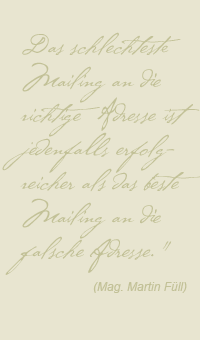 Das schlechteste
Mailing an die
richtige Adresse ist
jedenfalls erfolg-
reicher als das beste
Mailing an die
falsche Adresse."
(Mag. Martin Füll)